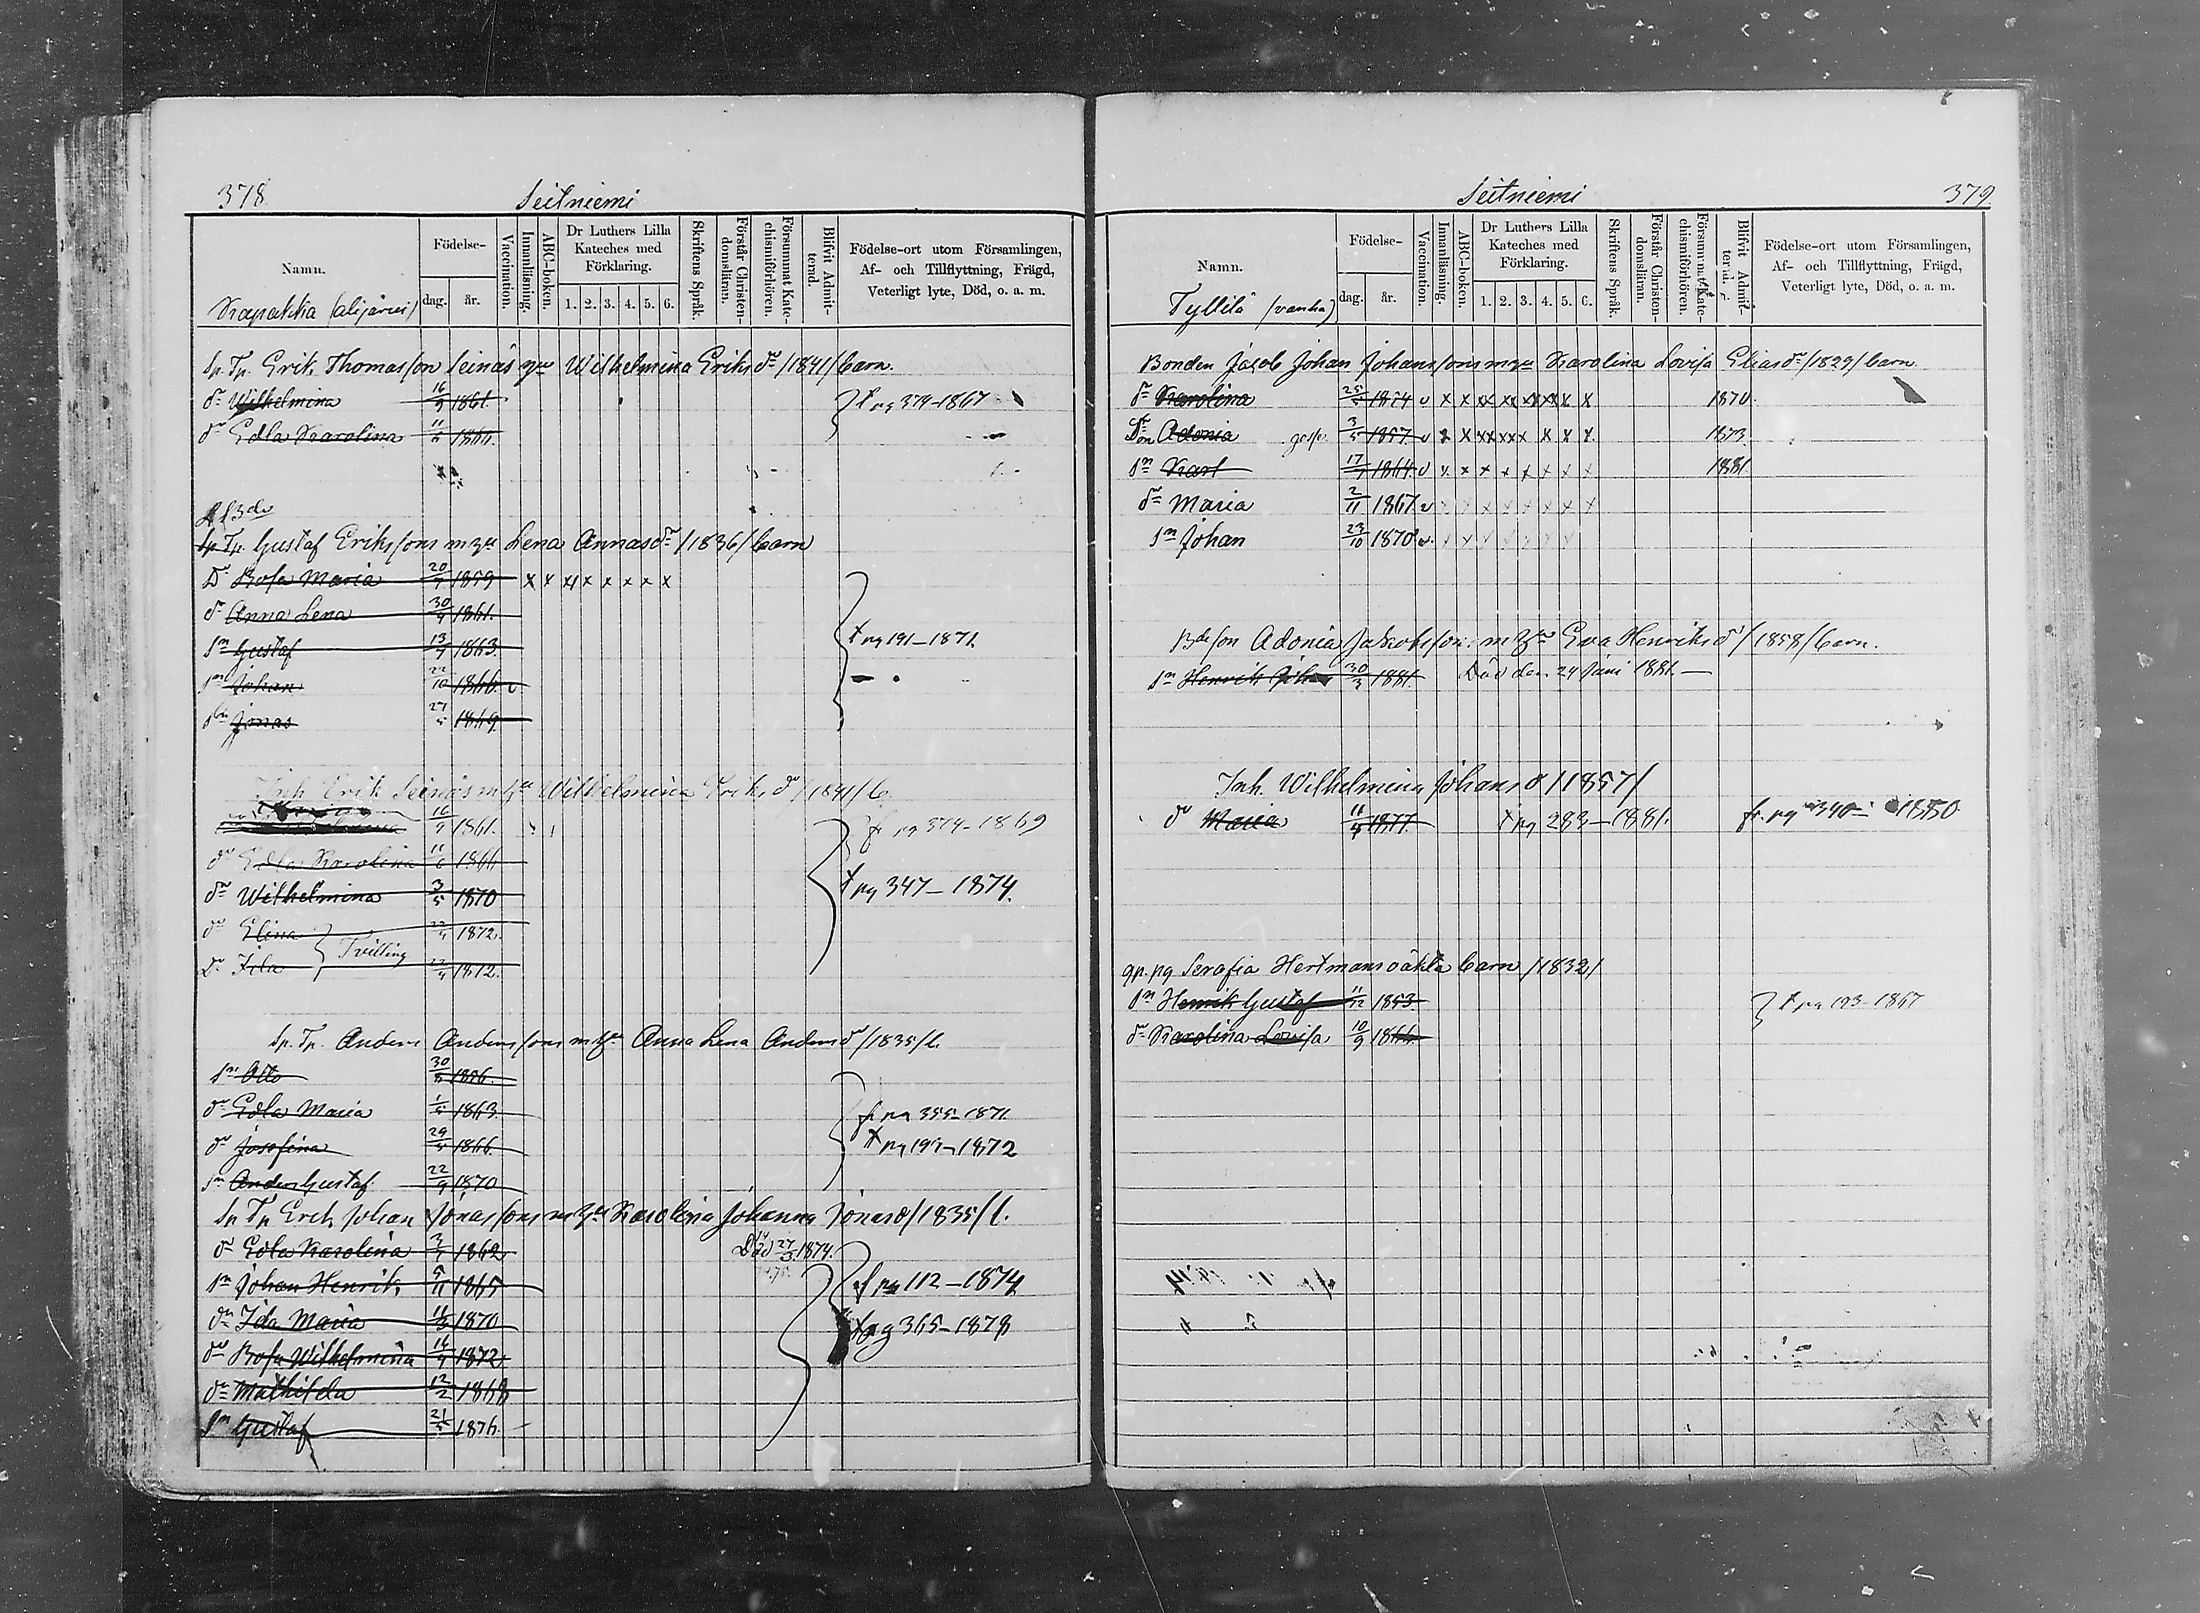 378.
Seitniemi
Namn.
Födelse-
dag.
år.
Vaccination.
Innanläsning.
ABC-boken.
Dr Luthers Lilla Kateches med Förklaring.
1. 2. 3. 4. 5. 6.
Skriftens Språk.
Förstår Christendomsläran.
Försummat Katechismiförhören.
Blifvit Admitterad.
Födelse-ort utom Församlingen, Af- och Tillflyttning, Frägd, Veterligt lyte, Död, o. a. m.
Krapakka (alijärvi)
Sp. Tp. Erik Thomasson Seinäs Wilhelmina Eriksdr /1841/ barn.
dr Wilhelmina 16/9 1861.
dr Edla Karolina 11/6 1866.
Gustaf Eriksons m hu Lena Annasdr /1836/ barn
Dr Rosa Maria 20/7 1859 x x x x x x x x
dr Anna Lena 30/9 1861.
sn Gustaf 13/9 1863
† pg 191–1871.
sn Johan 22/10 1866.
sn Jonas 27/5 1869.
Inh. Erik Seinäs m hu Wilhelmina Eriksdr /1841/ b.
16/9 1861.
fr pg 374–1869
dr Edla Karolina 11/6 1866
dr Wilhelmina 3/5 1870
† pg 347–1874.
dr Elina 22/4 1872.
Tvilling
Dr Ida 22/4 1872.
Sp. Tp. Anders Andersons m hu Anna Lena Andersdr /1835/ b.
sn Otto 30/5 1856.
dr Edla Maria 1/5 1863
fr pg 355–1871.
dr Josefina 29/5 1866
† pg 197–1872
sn Anders Gustaf 22/9 1870
Sp Tp Erik Johan Jonassons m hu Karolina Johanna Jonasd /1835/ b.
dr Edla Karolina 3/7 1862 Död 27/3 1874.
sn Johan Henrik 5/11 1865
pg 112–1874
dr Ida Maria 1870
† pg 365–1878
dr Rosa Wilhelmina 1872
dr Mathilda 12/2 1868
sn Gustaf 21/5 1876.
Seitniemi
379.
Namn.
Födelse-
dag.
år.
Vaccination.
Innanläsning.
ABC-boken.
Dr Luthers Lilla Kateches med Förklaring.
1. 2. 3. 4. 5. 6.
Skriftens Språk.
Förstår Christendomsläran.
Försummat Katechismiförhören.
Blifvit Admitterad.
Födelse-ort utom Församlingen, Af- och Tillflyttning, Frägd, Veterligt lyte, Död, o. a. m.
Tyllilä (vanha)
Bonden Jacob Johan Johanssons m hu Karolina Lovisa Eliasdr /1829/ barn
dr Karolina 1854 v x x xx xx xx xx x x 1870.
Adonia 3/5 1857 v x x x x x x x x x 1873.
sn Karl 17/7 1864 v x x x x x x x x 1881
dr Maria 2/11 1867 v x x x x x x x x
sn Johan 23/10 1870 v x x x x x x x
Bde son Adonia Jakobsson m hu Eva Henriksdr /1858/ barn.
sn Henrik Johan 30/3 1881. Död den 24 Juni 1881.–
Inh. Wilhelmina Johansd /1857/
dr Maria 11/4 1877. † pg 283–1881. fr. pg 340– 1880
Serafia Hertmans oäkta barn /1832/
sn Henrik Gustaf 11/12 1853
† pg 193–1867
dr Karolina Lovisa 10/9 1866.